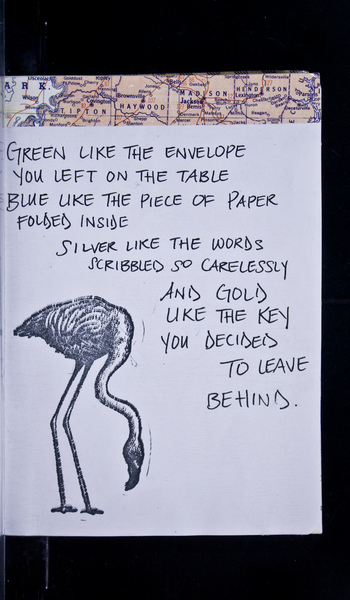 ARK.
TIPTON
HAYWOOD
MADISON
Jackson
HENDERSON
Lexington
Brownsville
GREEN LIKE THE ENVELOPE
YOU LEFT ON THE TABLE
BLUE LIKE THE PIECE OF PAPER
FOLDED INSIDE
SILVER LIKE THE WORDS
SCRIBBLED SO CARELESSLY
AND GOLD
LIKE THE KEY
YOU DECIDED
TO LEAVE
BEHIND.